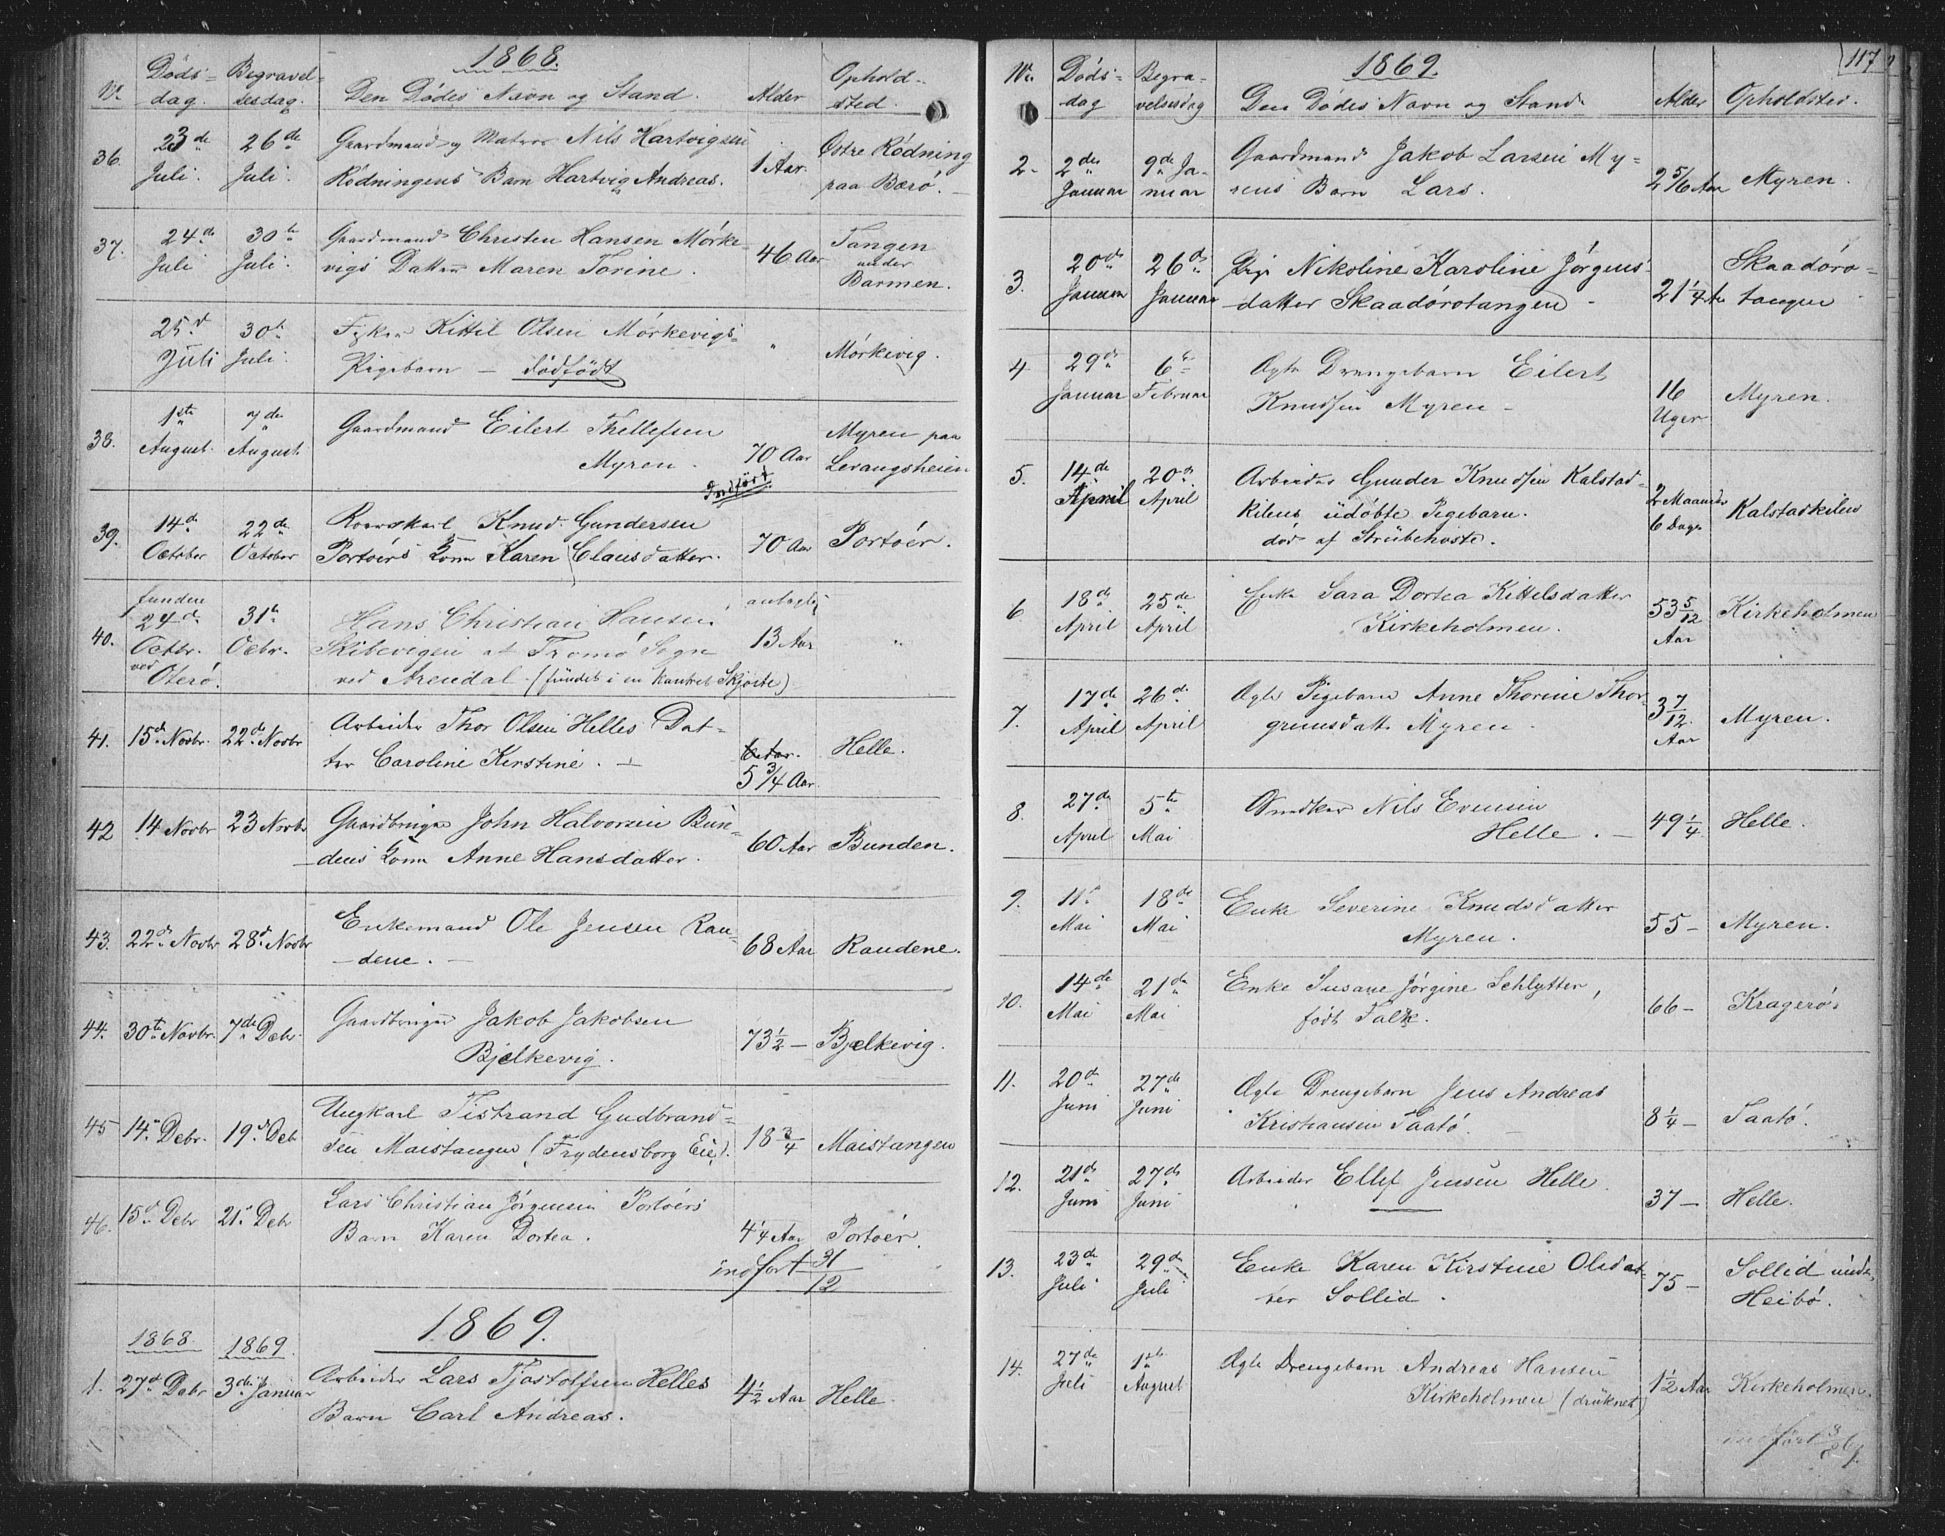 1868.
Nr. Døds- Begravel- Den Dødes Navn og Stand. Alder Ophold-
dag. sesdag. sted.
36. 23de Juli. 26de Juli. Gaardmand og Matros Nils Hartvigsen
Rødningens Barn Hartvig Andreas. 1 Aar. Østre Rødning
paa Bærø.
37. 24de Juli 30te Juli. Gaardmand Christen Hansen Mørke-
vigs Datter Maren Torine. 46 Aar Tangen
under
Barmen.
25d Juli 30te Juli. Kittil Olsen Mørkevigs
Pigebarn – dødfødt " Mørkevig.
38. 1ste August. 7de August Gaardmand Eilert Thellefsen
Myren. 70 Aar Myren paa
Levangsheien
Indført
39. 14de October 22de October Knud Gundersen
Portøers Kone Karen Clausdatter. 70 Aar Portøer.
40. funden 24de Octbr. ved Oterø. 31te Octbr. Hans Christian Hansen
Skibevigen af Tromø Sogn
ved Arendal. (fundet i en kantret Skjøite) antagelig
13 Aar "
41. 15de Novbr. 22de Novbr Arbeider Thor Olsen Helles Dat-
ter Caroline Kirstine. – 5 3/4 Aar Helle.
42 14 Novbr 23 Novbr Gaardbruger John Halvorsen Bun-
dens Kone Anne Hansdatter. 60 Aar Bunden.
43. 22de Novbr 28de Novbr Enkemand Ole Jensen Ran-
-dene. – 68 Aar Randene.
44. 30te Novbr. 7de Debr. Gaardbruger Jakob Jakobsen
Bjelkevig. 73 1/2 – Bjelkevig.
45 14. Debr. 19de Deb Ungkarl Tistrand Gudbrand-
sen Maistangen (Frydensborg Eie). 18 3/4 Maistangen
46. 15de Debr 21de Debr Lars Christian Jørgensen Portøers
Barn Karen Dortea. 4 1/4 Aar Portøer.
indført 31/12
1869.
1868. 1869.
1. 27de Debr 3die Januar Arbeider Lars Tjostolfsen Helles
Barn Carl Andreas. 4 1/2 Aar Helle.
117
1869.
Nr. Døds- Begra- Den Dødes Navn og Stand Alder Opholdsted.
dag velsesdag
2. 2den Januar 9de Ja-
nuar Gaardmand Jakob Larsen My-
rens Barn Lars. 2 5/6 Aar Myren.
3. 20de Januar 26de Januar Pige Nikoline Karoline Jørgens-
datter Skaadørotangen – 21 1/4 Skaadørø-
tangen
4 29de Januar 6te Februar Ægte Drengebarn Eilert
Knudsen Myren – 16
Uger Myren.
5. 14de April 20de April Arbeider Gunder Knudsen Kalstad-
kilens udøbte Pigebarn.
død af Strubehoste. 2 Maaneder
6 Dage Kalstadkilen
6 18de April 25de April Enke Sara Dortea Kittelsdatter
Kirkeholmen. 53 5/12
Aar Kirkeholmen
7. 17de April 26de April Ægte Pigebarn Anne Thorine Thor-
grimsdatter Myren – 3 7/12.
Aar Myren.
8. 27de April 5te Mai Snedker Nils Evensen
Helle. – 49 1/4 Helle.
9. 11te Mai 18de Mai Enke Severine Knudsdatter
Myren. 55 – Myren.
10. 14de Mai 21de Mai Enke Susane Jørgine Schlytter,
født Falk. 66 – Kragerø.
11. 20de Juni 27de Juni Ægte Drengebarn Jens Andreas
Kristiansen Taatø. – 8 1/4 – Taatø.
12. 21de Juni 27de Juni Arbeider Ellef Jensen Helle 37 – Helle.
13. 23de Juli 29de Juli Enke Karen Kirstine Olsdat-
ter Sollid. 75 – Sollid under
Heibø.
14. 27de Juli 1ste August Ægte Drengebarn Andreas Hansen
Kirkeholmen (druknet) 1 1/2 Aar Kirkeholmen.
indført